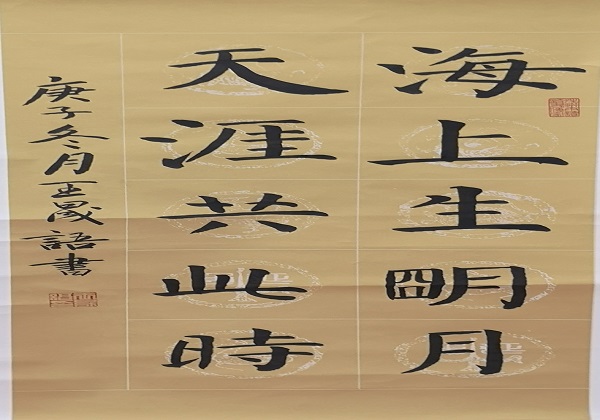 海上生明月
天涯共此時
庚子冬月王晟語書